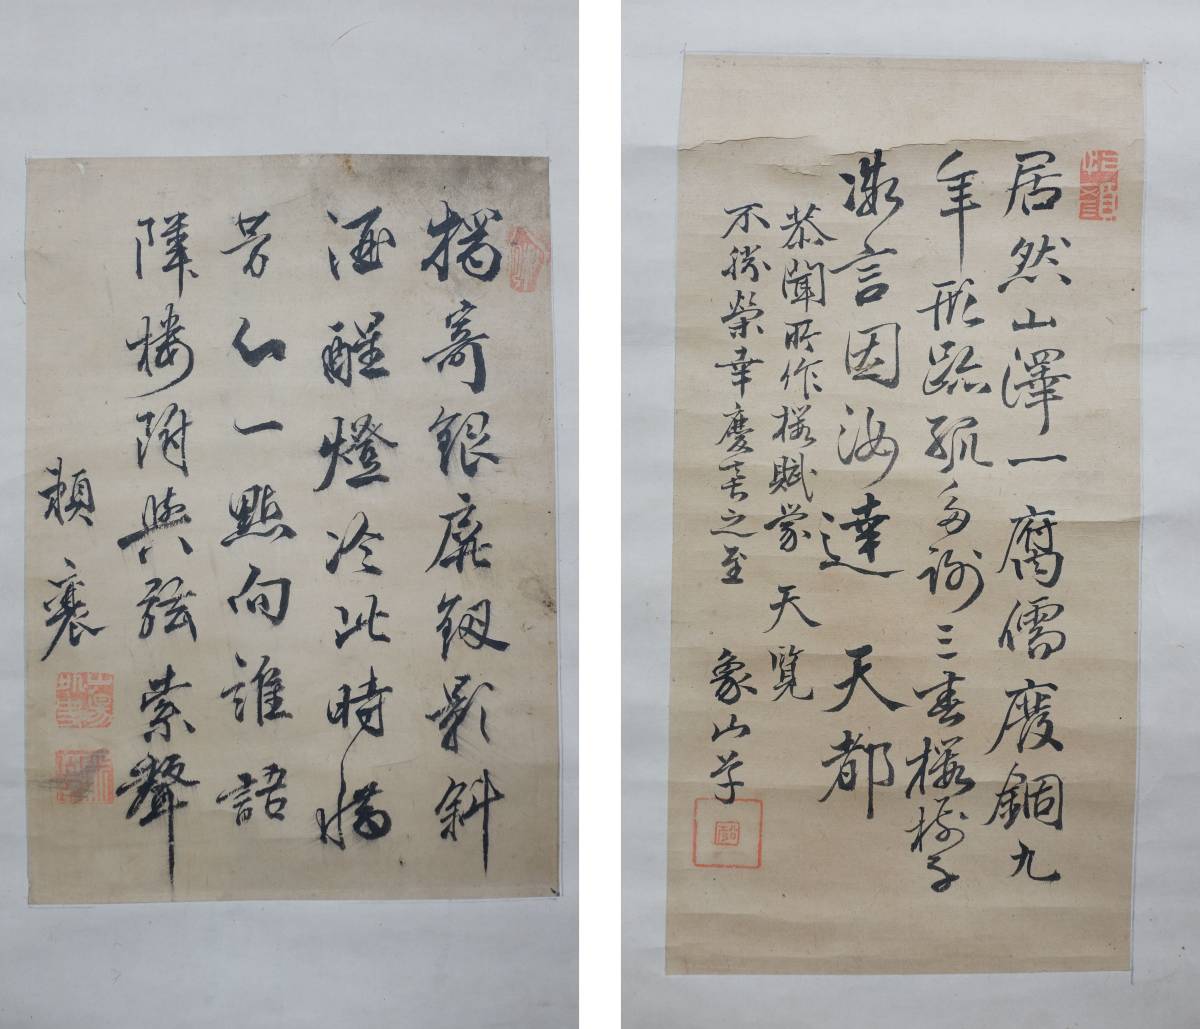 寄銀屏釵影斜
酒醒燈冷此時
芳心一點向誰語
樓附與弦索聲
頼襄
居然山澤一腐儒廢錮九
年形跡孤多謝三春櫻樹子
微言因汝達天都
恭聞所作櫻賦蒙 天覧
不勝榮幸慶喜之至 象山